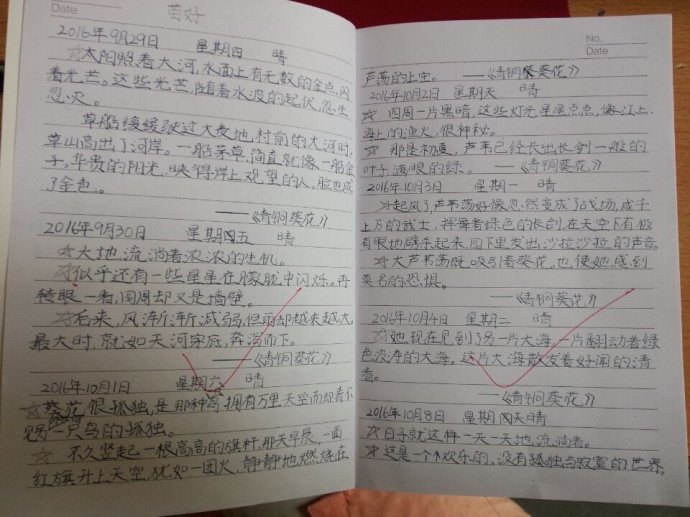 Date
苗好
2016年9月29日 星期四 晴
☆太阳照着大河,水面上有无数的金点,闪
着光芒。这些光芒,随着水波的起伏,忽生
忽灭。
草船缓缓驶过大麦地,村前的大河时,
草山高出了河岸。一船茅草,简直就像一船金
子。华贵的阳光,映得岸上观望的人,脸也成
了金色。
——《青铜葵花》
2016年9月30日 星期四五 晴
☆大地,流淌着浓浓的生机。
☆似乎还有一些星星在朦胧中闪烁。再
转眼一看,四周却又是墙壁。
☆后来,风渐渐减弱,但雨却越来越大,
最大时,就如天河穿底,奔泻而下。
——《青铜葵花》
2016年10月1日 星期六 晴
☆葵花很孤独,是那种 拥有万里天空而却看不
见另一只鸟的孤独。
不久竖起一根高高的旗杆,那天早晨,一面
红旗升上天空,犹如一团火,静静地燃烧在
No.
Date
芦荡的上空。 ——《青铜葵花》
2016年10月2日 星期天 晴
☆四周一片黑暗,这些灯光星星点点,像江上、
海上的渔火,很神秘。
☆那是初夏,芦苇已经长出长剑一般的
叶子,满眼的绿。 ——《青铜葵花》
2016年10月3日 星期一 晴
☆起风了,芦苇荡好像忽然变成了战场,成千
上万的武士,挥舞着绿色的长剑,在天空下有板
有眼地劈杀起来,四下里发出沙拉沙拉的声音。
☆大芦苇荡既吸引着葵花,也使她感到
莫名的恐惧。
——《青铜葵花》
2016年10月4日 星期二 晴
☆她现在见到了另一片大海,一片翻动着绿
色波涛的大海。这片大海散发着好闻的清
香。
——《青铜葵花》
2016年10月8日 星期 晴
☆日子就这样一天一天地,流淌着。
☆这是一个欢乐的,没有孤独与寂寞的世界。